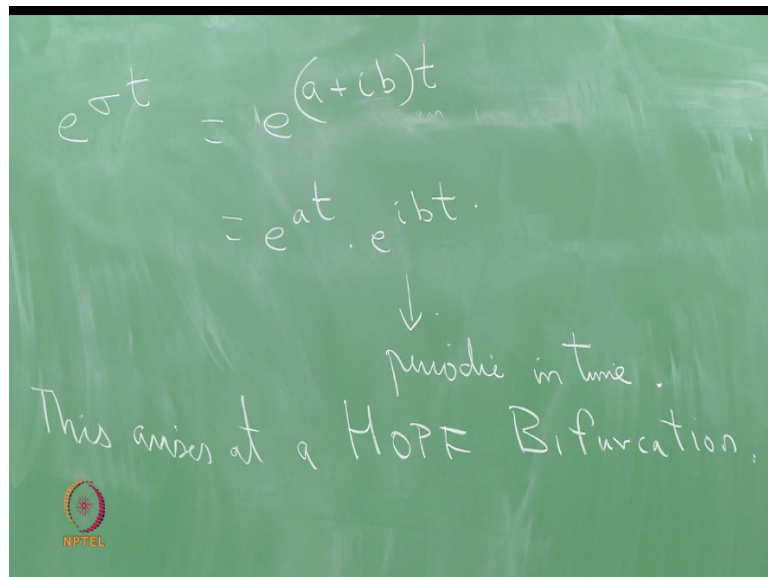 e^{σt} = e^{(a+ib)t}
= e^{at} . e^{ibt}.
↓
periodic in time.
This arises at a HOPF Bifurcation.
NPTEL